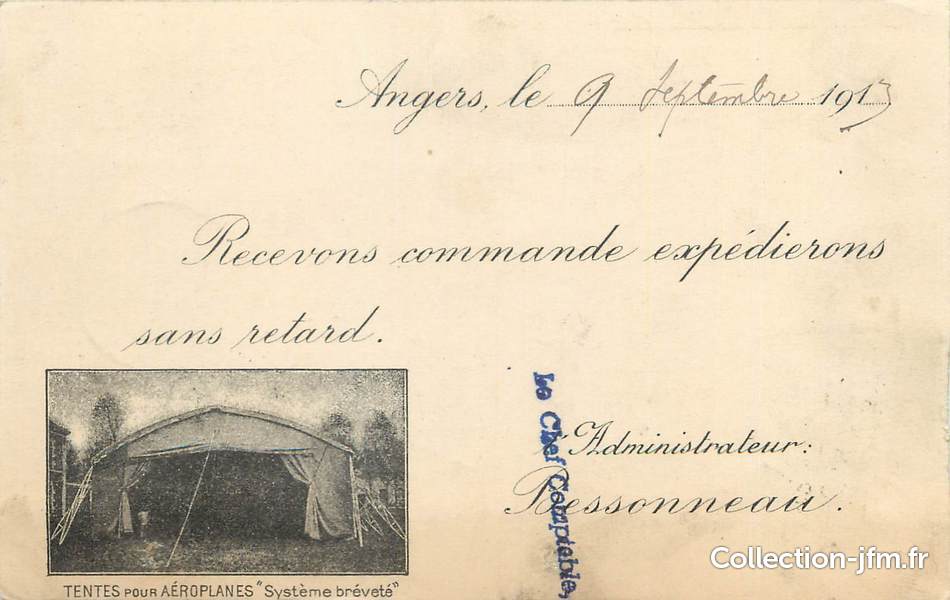 Angers, le 9 Septembre 1913
Recevons commande expédierons
sans retard.
Le Chef Comptable,
l'Administrateur:
Bessonneau.
TENTES POUR AÉROPLANES "Système bréveté"
Collection-jfm.fr